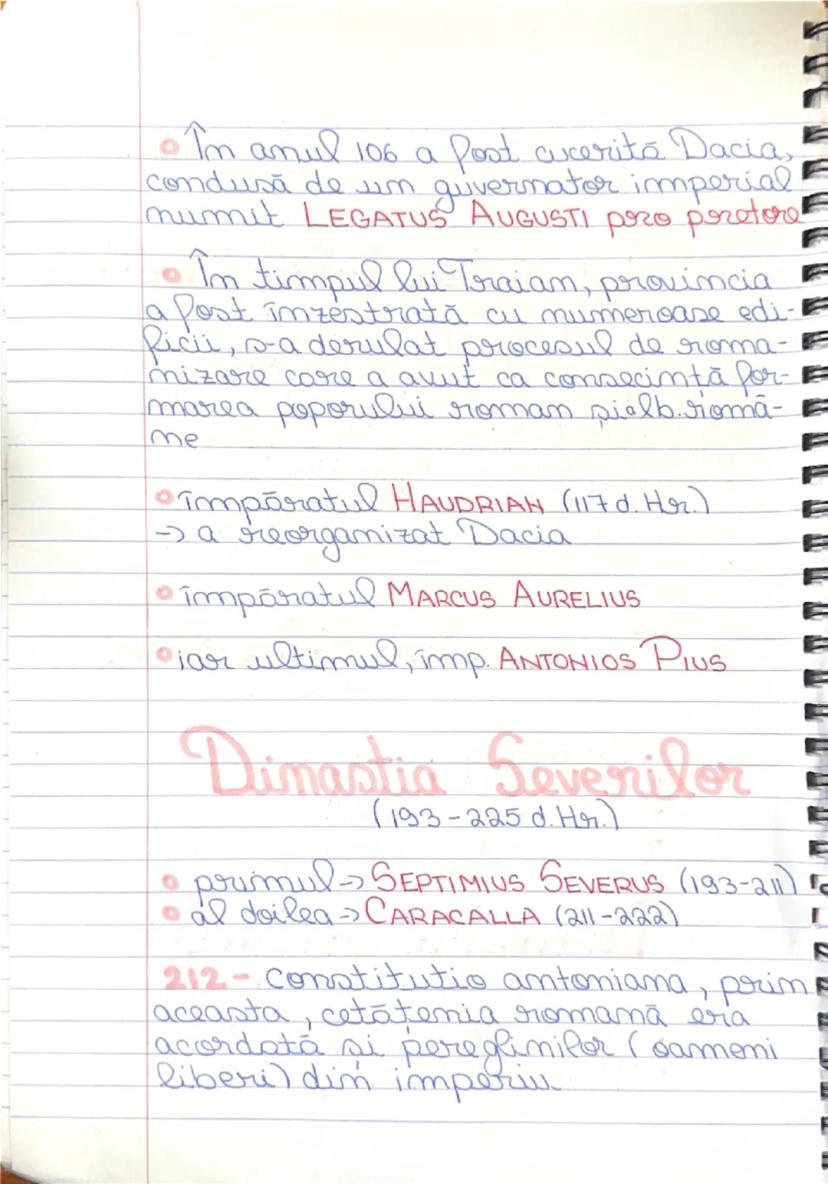 În anul 106 a fost cucerită Dacia,
condusă de un guvernator imperial
numit LEGATUS AUGUSTI pro pretore
În timpul lui Traian, provincia
a fost înzestrată cu numeroase edi-
ficii, s-a derulat procesul de roma-
nizare care a avut ca consecință for-
marea poporului roman și a lb. româ-
ne
împăratul HAUDRIAN (117 d. Hr.)
-> a reorganizat Dacia
împăratul MARCUS AURELIUS
iar ultimul, imp. ANTONIOS PIUS
Dinastia Severilor
(193-225 d. Hr.)
primul -> SEPTIMIUS SEVERUS (193-211)
al doilea -> CARACALLA (211-222)
212 - Constitutio antoniana, prin
aceasta, cetățenia romană era
acordată și pereglinilor (oameni
liberi) din imperiu